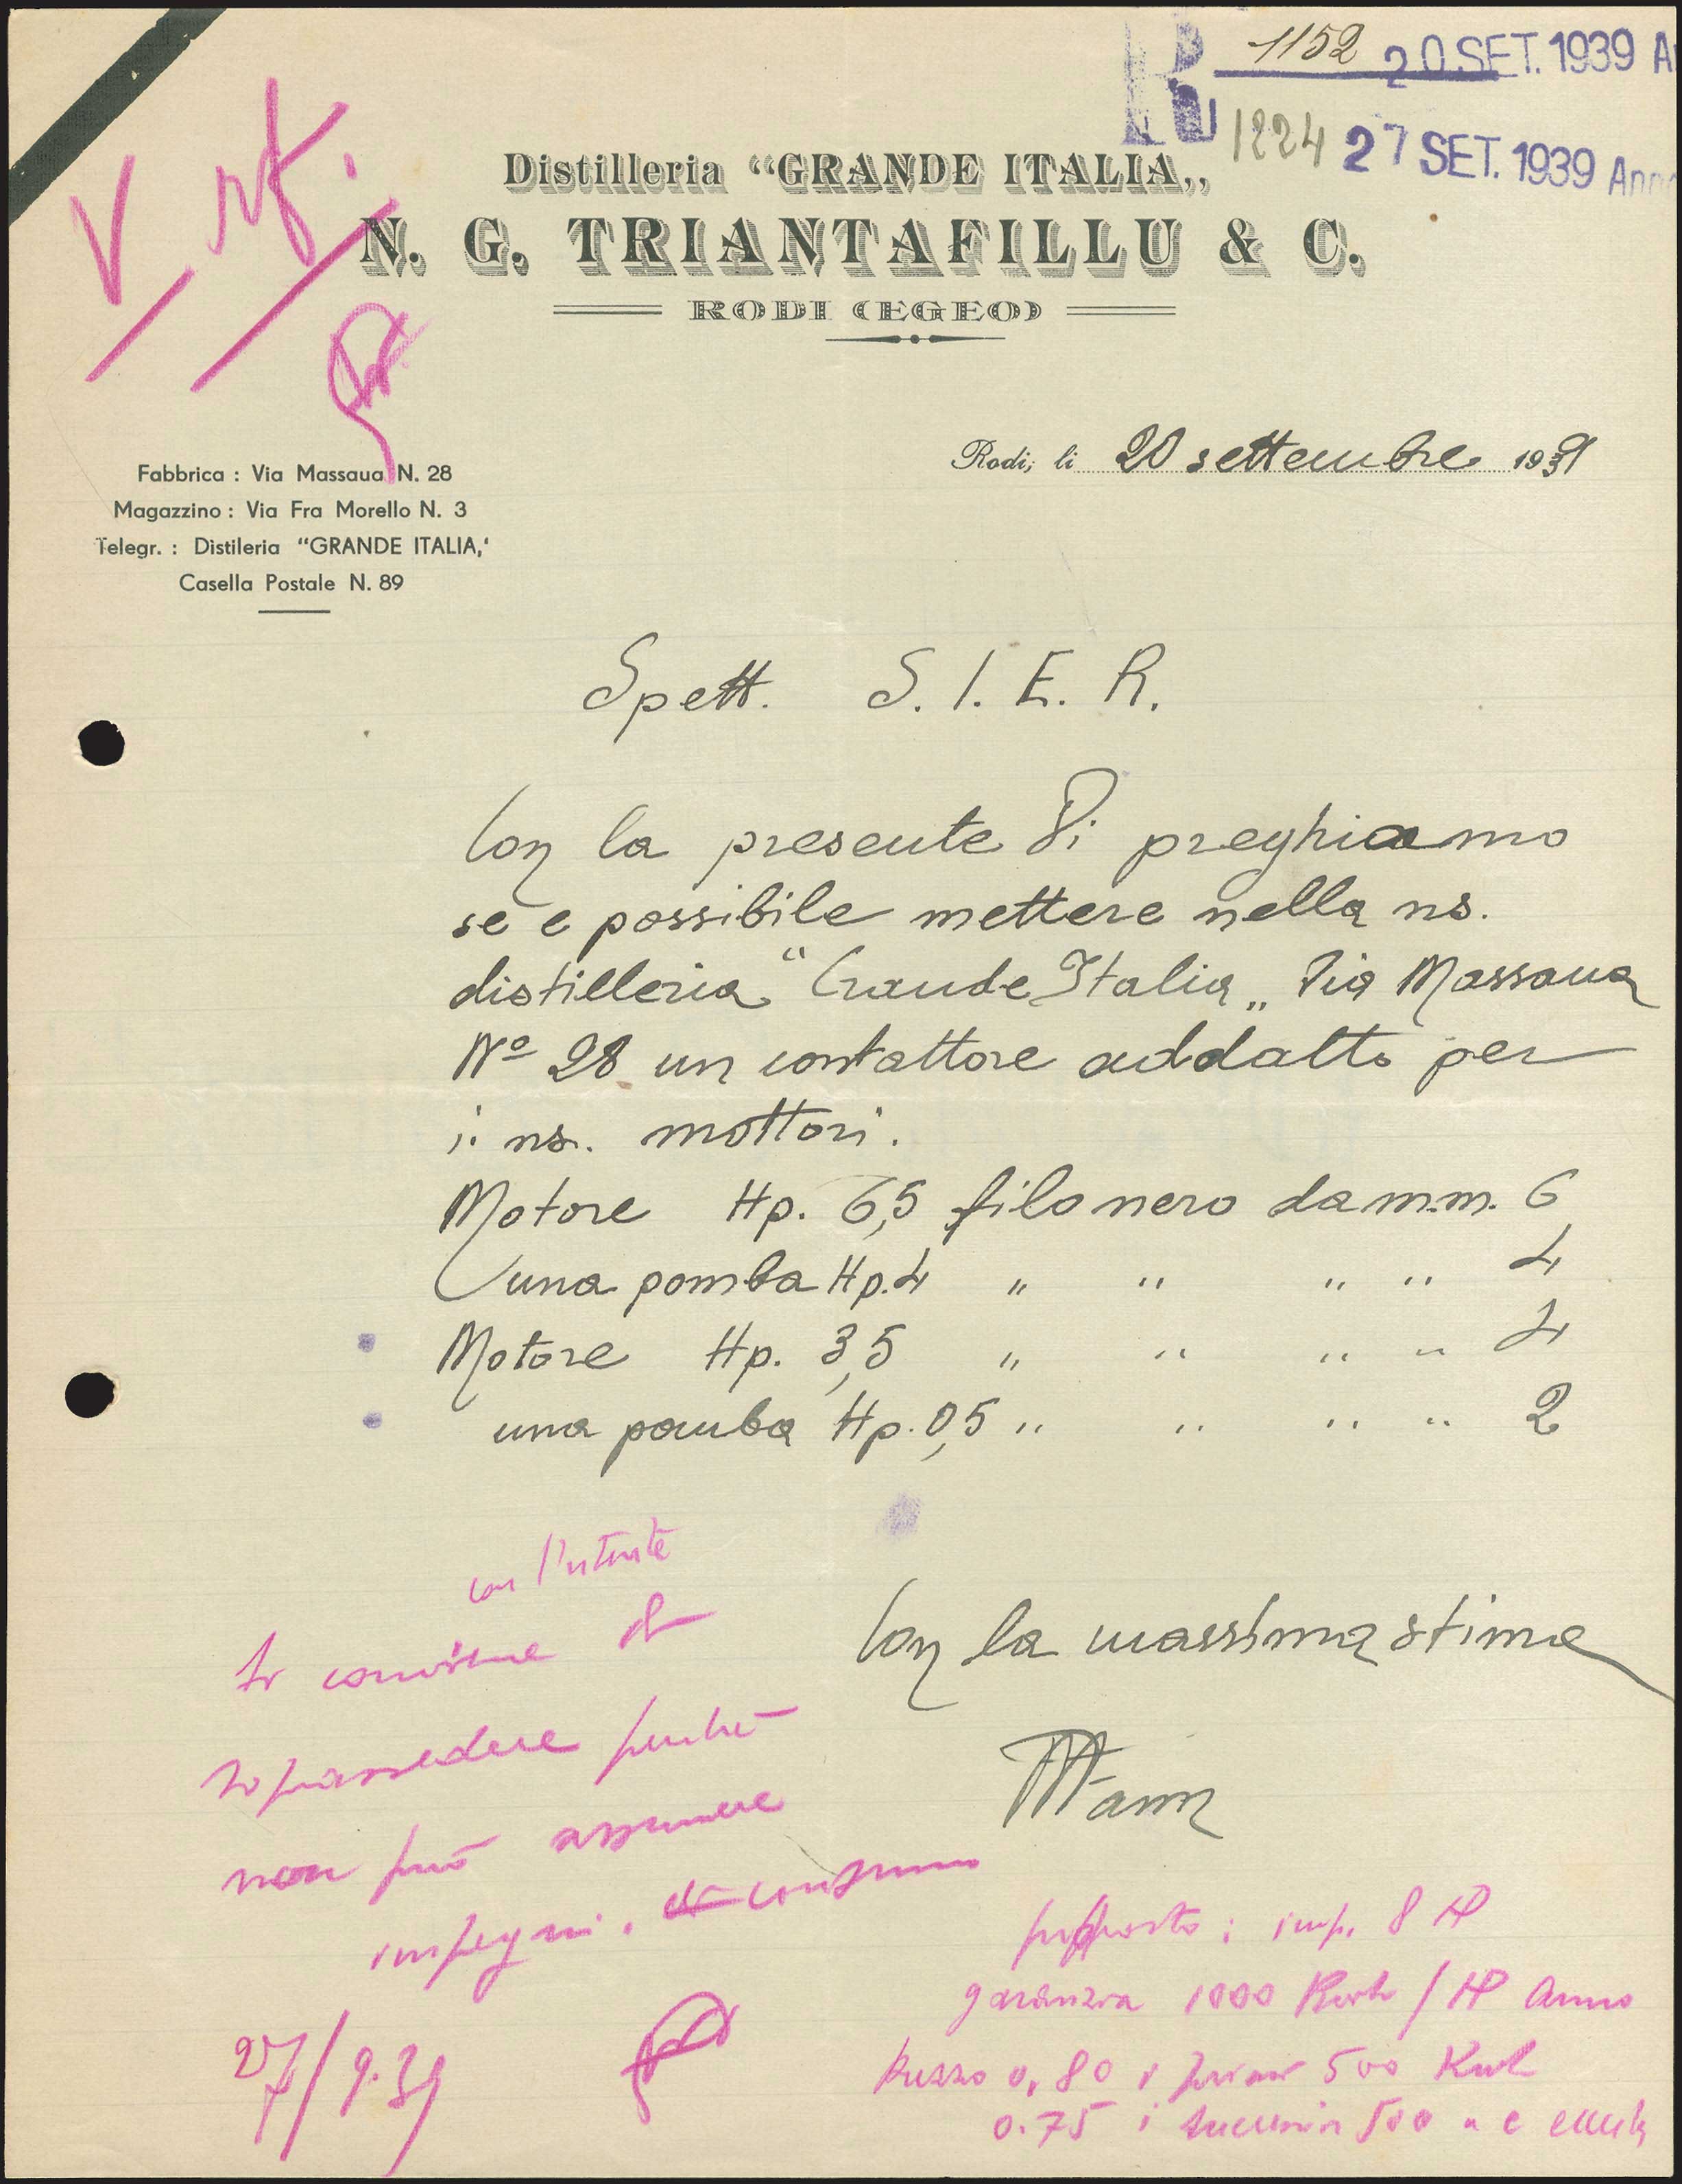 1152 20 SET. 1939 A
1224 27 SET. 1939 Anno
V rif.
Distilleria “GRANDE ITALIA„
N. G. TRIANTAFILLU & C.
RODI (EGEO)
Rodi, li 20 settembre 1939
Fabbrica : Via Massaua N. 28
Magazzino : Via Fra Morello N. 3
Telegr. : Distileria “GRANDE ITALIA,‘
Casella Postale N. 89
Spett. S. I. E. R.
Con la presente Vi preghiamo
se e possibile mettere nella ns.
distilleria “Grande Italia„ Via Massaua
Nº 28 un contattore addatto per
i ns. mottori.
Motore Hp. 6,5 filo nero da m.m. 6
una pomba Hp. 4 „ „ „ „ 4
Motore Hp. 3,5 „ „ „ „ 4
una pomba Hp. 0,5 „ „ „ „ 2
Con la massima stima
con l'utente
Si conviene di
soprassedere perchè
non può assumere
impegni. di consumo
27/9.39
proposto : imp. 8 HP
garanzia 1000 / HP Anno
Prezzo 0,80 i primi 500 Kwh
0.75 i successivi 500 " e